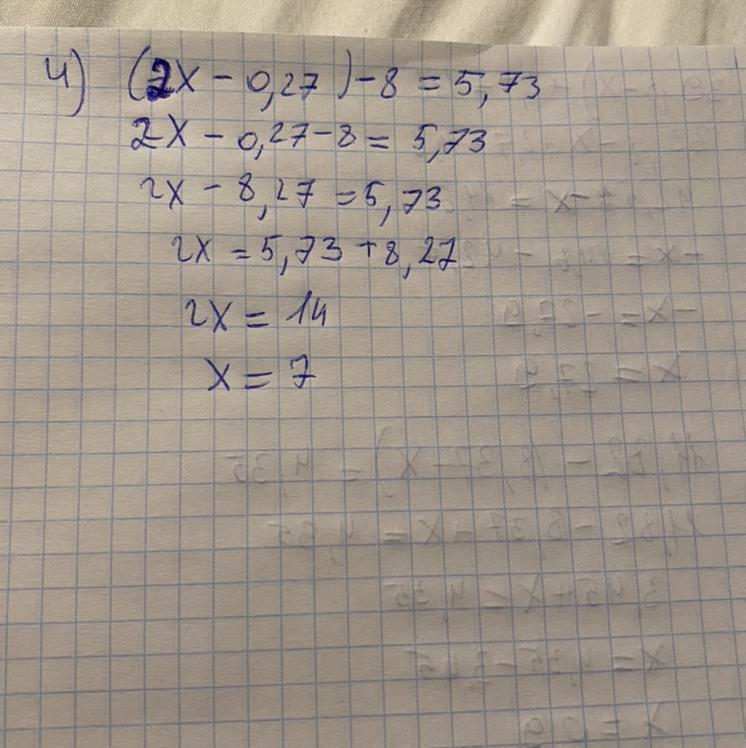 4) (2x - 0,27) - 8 = 5,73
2x - 0,27 - 8 = 5,73
2x - 8,27 = 5,73
2x = 5,73 + 8,27
2x = 14
x = 7